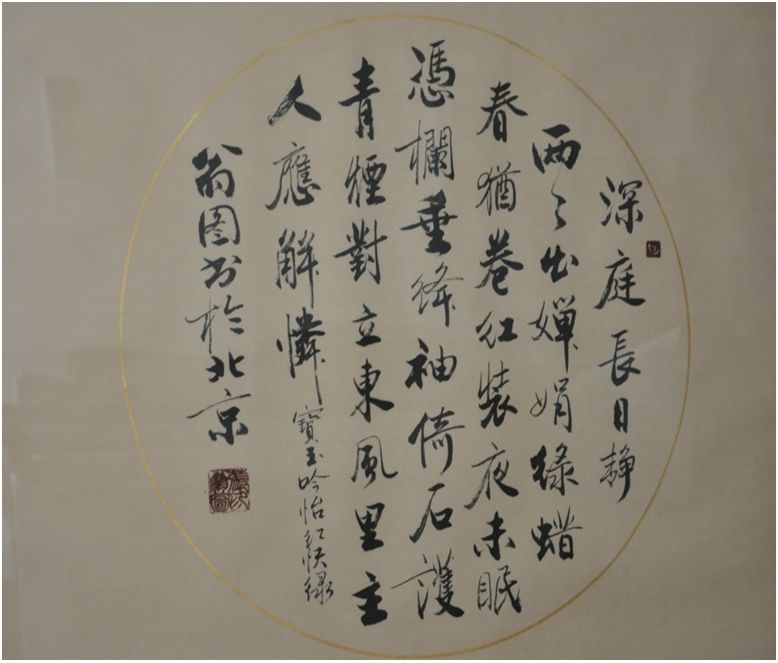 深庭長日静
兩々出嬋娟綠蜡
春猶卷红裝夜未眠
憑欄垂絳袖倚石護
青煙對立東風里主
人應解憐
寶玉吟怡红快绿
翁图书於北京